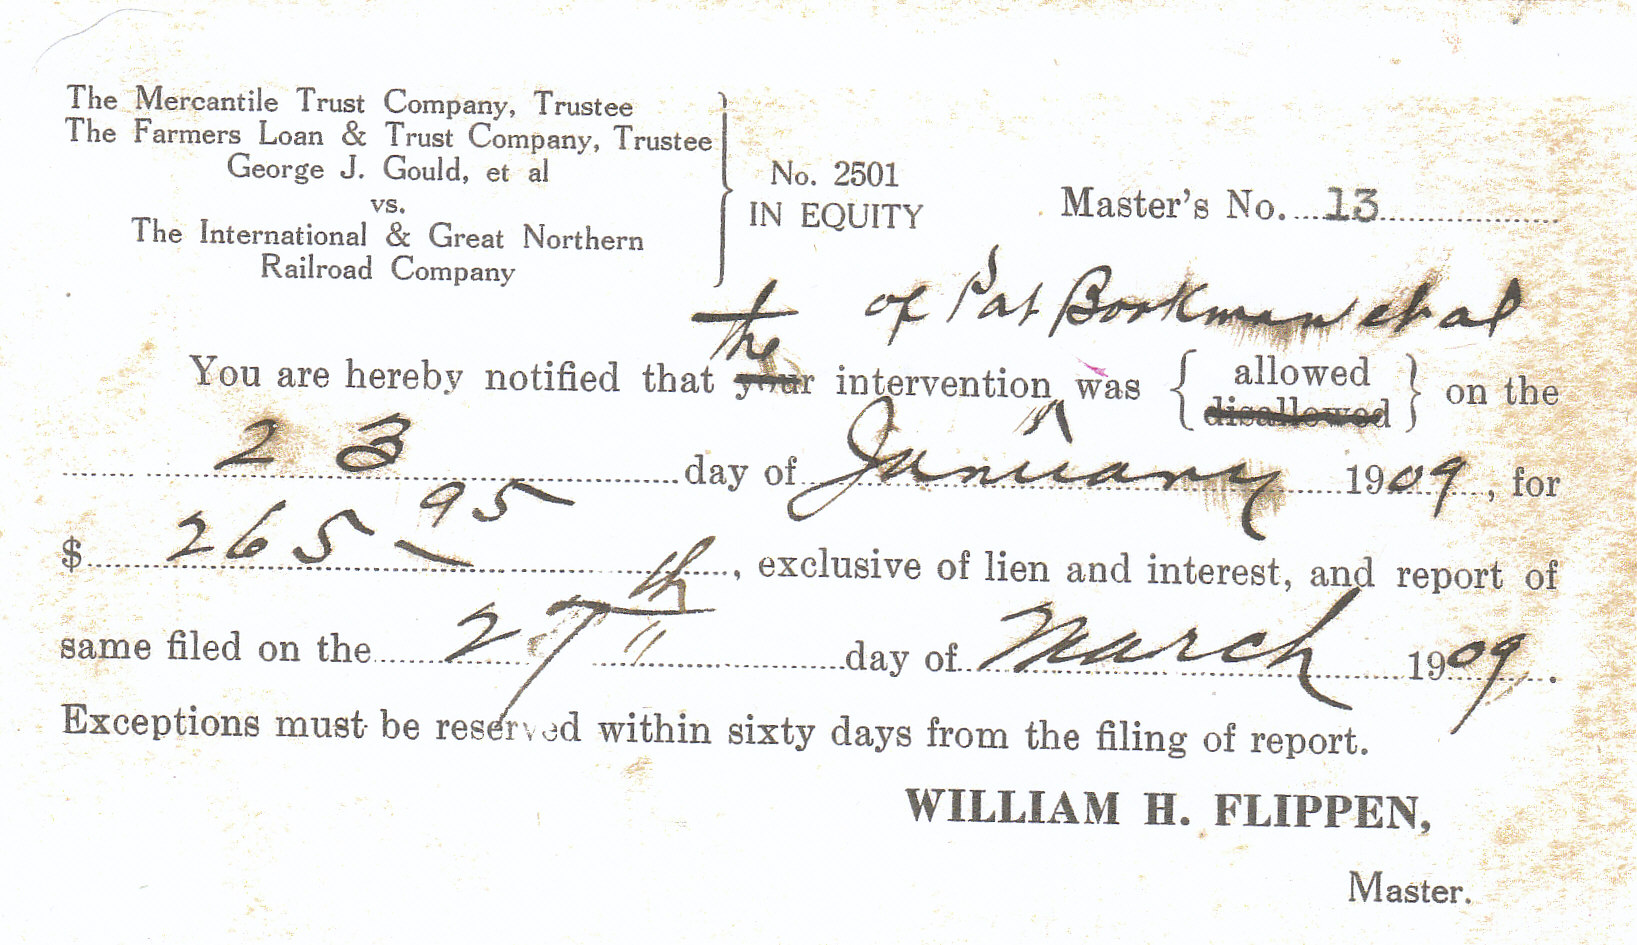 The Mercantile Trust Company, Trustee
The Farmers Loan & Trust Company, Trustee
George J. Gould, et al
vs.
The International & Great Northern
Railroad Company
No. 2501
IN EQUITY
Master's No. 13
the of Pat Bookman et al
You are hereby notified that your intervention ^ was { allowed disallowed } on the
23 day of January 1909, for
$ 265 95, exclusive of lien and interest, and report of
same filed on the 27th day of March 1909.
Exceptions must be reserved within sixty days from the filing of report.
WILLIAM H. FLIPPEN,
Master.